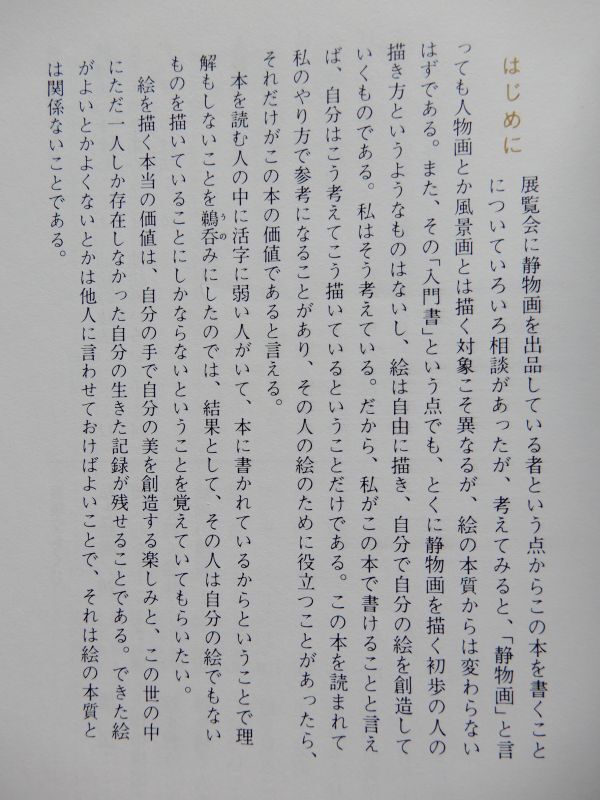 はじめに
展覧会に静物画を出品している者という点からこの本を書くこと
についていろいろ相談があったが、考えてみると、「静物画」と言
っても人物画とか風景画とは描く対象こそ異なるが、絵の本質からは変わらない
はずである。また、その「入門書」という点でも、とくに静物画を描く初歩の人の
描き方というようなものはないし、絵は自由に描き、自分で自分の絵を創造して
いくものである。私はそう考えている。だから、私がこの本で書けることと言え
ば、自分はこう考えてこう描いているということだけである。この本を読まれて
私のやり方で参考になることがあり、その人の絵のために役立つことがあったら、
それだけがこの本の価値であると言える。
本を読む人の中に活字に弱い人がいて、本に書かれているからということで理
解もしないことを鵜呑みにしたのでは、結果として、その人は自分の絵でもない
ものを描いていることにしかならないということを覚えていてもらいたい。
絵を描く本当の価値は、自分の手で自分の美を創造する楽しみと、この世の中
にただ一人しか存在しなかった自分の生きた記録が残せることである。できた絵
がよいとかよくないとかは他人に言わせておけばよいことで、それは絵の本質と
は関係ないことである。